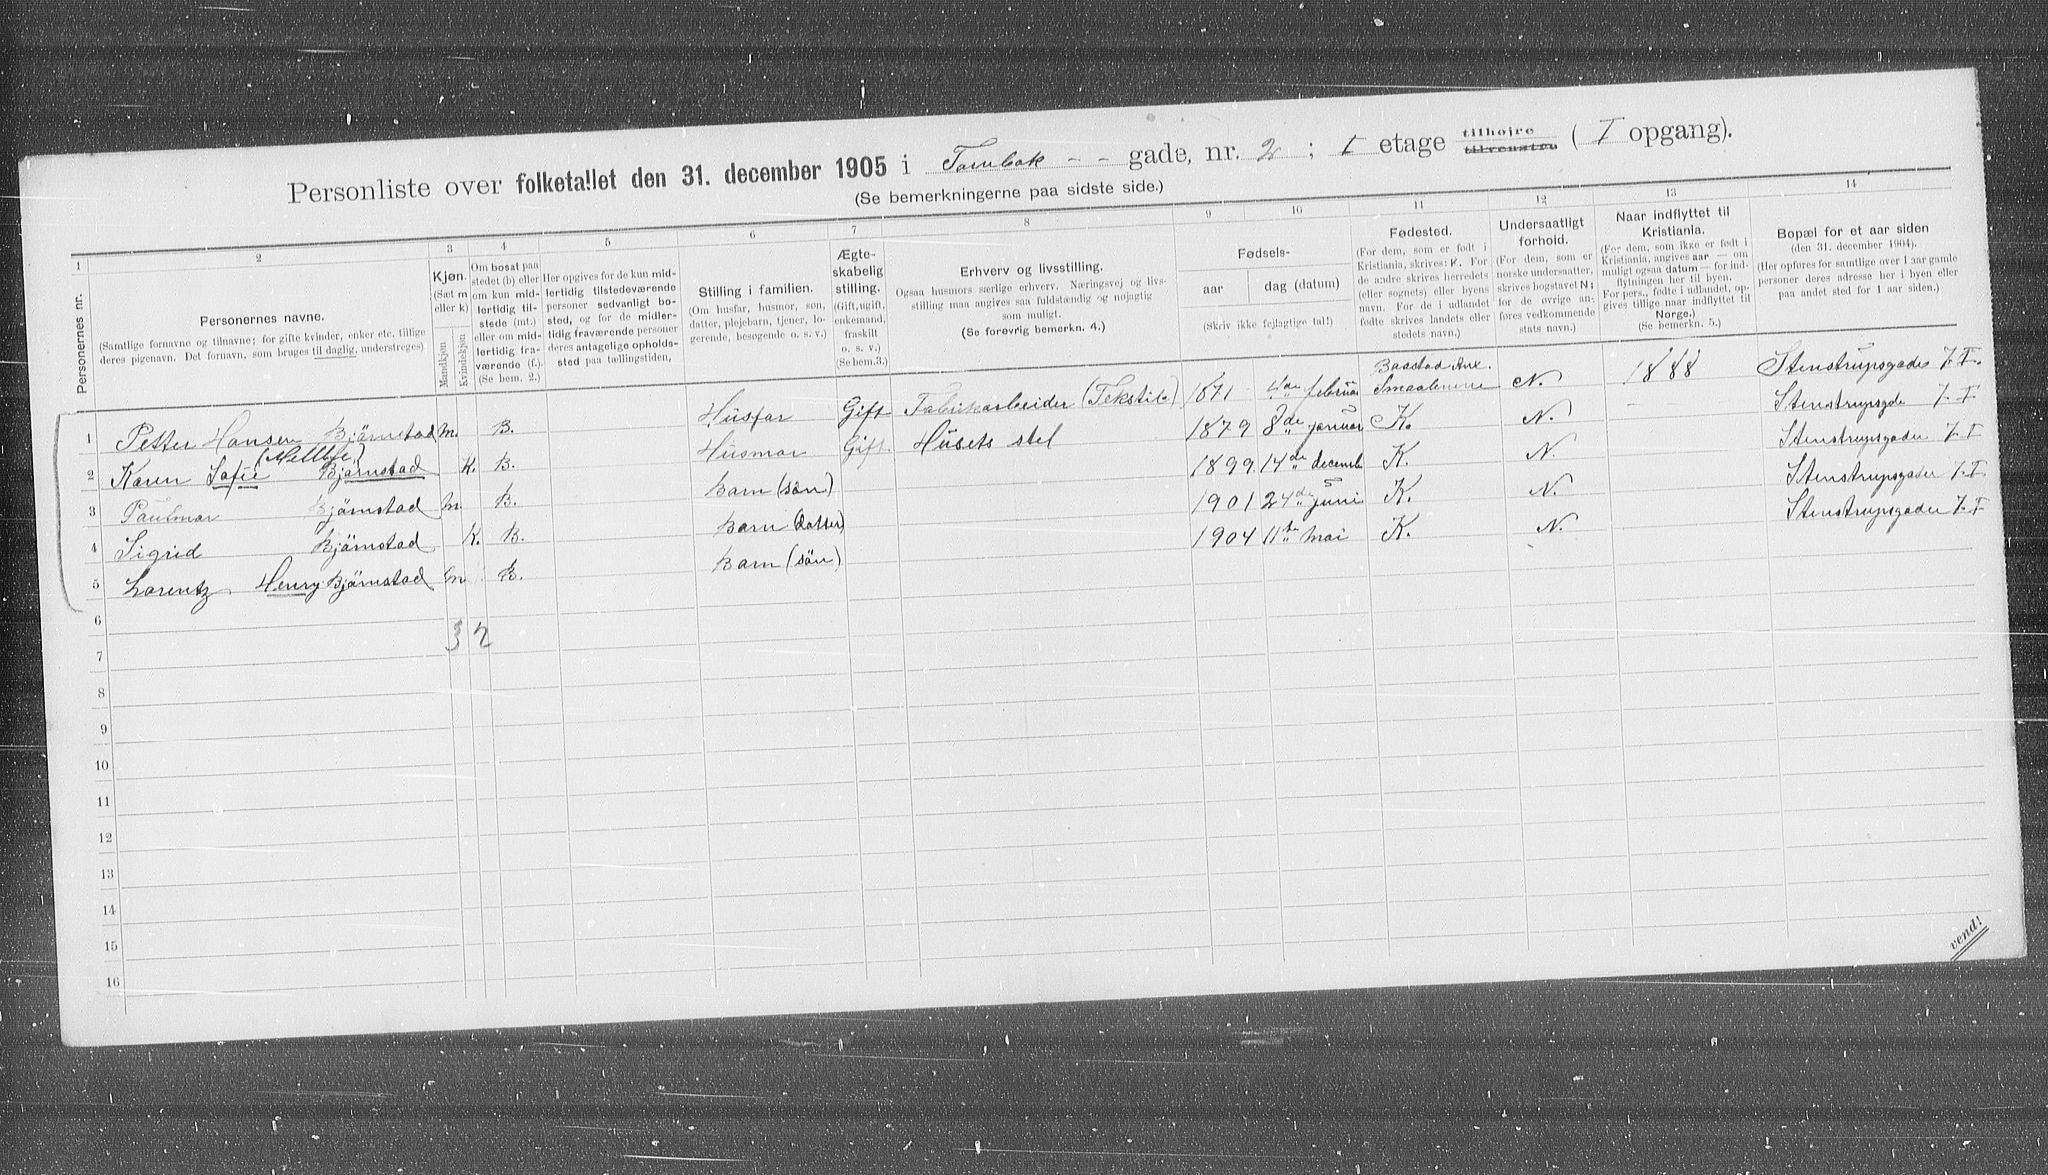 Personliste over folketallet den 31. december 1905 i Tombak - - gade, nr. 2 ; I etage tilhøjre tilvenstre ( I opgang).
(Se bemerkningerne paa sidste side.)
1 2 3 4 5 6 7 8 9 10 11 12 13 14
Personernes nr.
Personernes navne.
(Samtlige fornavne og tilnavne; for gifte kvinder, enker etc. tillige
deres pigenavn. Det fornavn, som bruges til daglig, understreges)
Kjøn.
(Sæt m
eller k)
Mandkjøn
Kvindekjøn
Om bosat paa
stedet (b) eller
om kun mid-
lertidig til-
stede (mt.)
eller om mid-
lertidig fra-
værende (f.).
(Se bem. 2.)
Her opgives for de kun mid-
lertidig tilstedeværende
personer sedvanligt bo-
sted, og for de midler-
tidig fraværende personer
deres antagelige opholds-
sted paa tællingstiden,
Stilling i familien.
(Om husfar, husmor, søn,
datter, plejebarn, tjener, lo-
gerende, besøgende o. s. v.)
Ægte-
skabelig
stilling.
(Gift, ugift,
enkemand,
fraskilt
o. s. v.)
(Se bem.3.)
Erhverv og livsstilling.
Ogsaa husmors særlige erhverv. Næringsvej og livs-
stilling maa angives saa fuldstændig og nojagtig
som muligt.
(Se forøvrig bemerkn. 4.)
Fødsels-
aar
dag (datum)
(Skriv ikke fejlagtige tal!)
Fødested.
(For dem, som er født i
Kristiania, skrives: K. For
de andre skrives herredets
(eller sognets) eller byens
navn. For de i udlandet
fødte skrives landets eller
stedets navn.)
Undersaatligt
forhold.
(For dem, som er
norske undersaatter,
skrives bogstavet N;
for de øvrige an-
føres vedkommende
stats navn.)
Naar indflyttet til
Kristiania.
(For dem, som ikke er født i
Kristiania, angives aar — om
muligt ogsaa datum — for ind-
flytningen her til byen.
For pers., fødte i udlandet, op-
gives tillige naar indflyttet til
Norge.)
(Se bemerkn. 5.)
Bopæl for et aar siden
(den 31. december 1904).
(Her opføres for samtlige over 1 aar gamle
personer deres adresse her i byen eller
paa andet sted for 1 aar siden.)
1 Petter Hansen Bjärnstad m. B. Husfar Gift Fabrikarbeider (Tekstil) 1871 4de februar Baastad Anx. Smaalenene N. 1888 Stenstrupsgades 7. I.
2 Karen Sofie (Meltefe) Bjärnstad K. B. Husmor Gift. Husets stel 1879 8de januar K. N. Stenstrupsgde 7. I
3 Paulmar Bjärnstad m. B. Barn (sön) 1899 14de decemb K. N. Stenstrupsgader 7. I
4 Sigrid Bjärnstad K. B. Barn (datter) 1901 24de juni K. N. Stenstrupsgader 7. I
5 Lorentz Henry Bjärnstad m B. Barn (sön) 1904 11te mai K. N. Stenstrupsgader 7. I
6
7 3 2
8
9
10
11
12
13
14
15
16
vend!